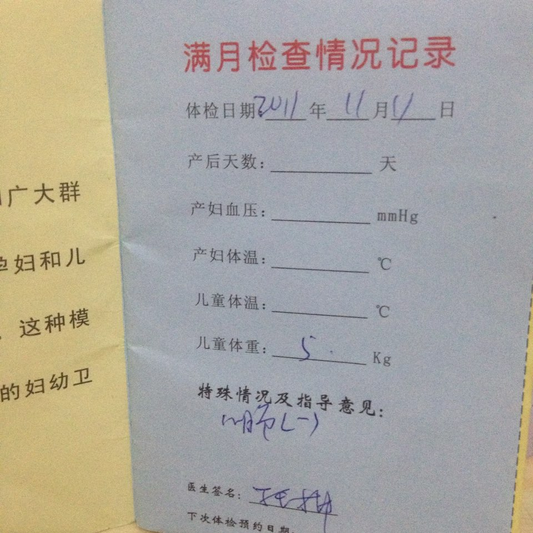 广大群
孕妇和儿
这种模
的妇幼卫
满月检查情况记录
体检日期:2011年11月11日
产后天数: 天
产妇血压: mmHg
产妇体温: ℃
儿童体温: ℃
儿童体重: 5. Kg
特殊情况及指导意见:
(一)
医生签名:
下次体检预约日期: